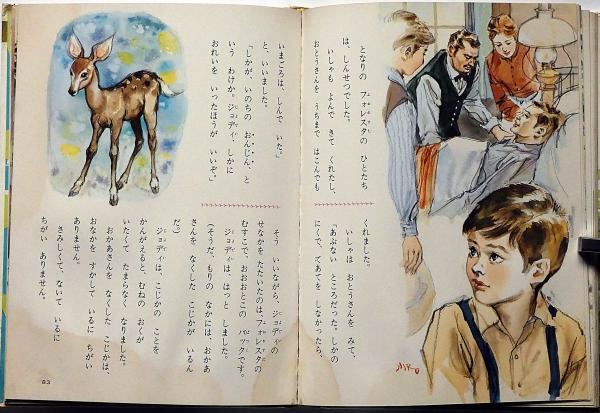 となりの フォレスタの ひとたち
は、しんせつでした。
いしゃも よんで きて くれたし、
おとうさんを うちまで はこんでも
くれました。
いしゃは おとうさんを みて、
「あぶない ところだった。しかの
にくで、てあてを しなかったら、
いまごろは、しんで いた。」
と、いいました。
「しかが、いのちの おんじん、と
いう わけか。ジョディ、しかに
おれいを いったほうが いいぞ。」
そう いいながら、ジョディの
せなかを たたいたのは、フォレスタの
むすこで、おおおとこの バックです。
ジョディは、はっと しました。
(そうだ、もりの なかには、おかあ
さんを なくした こじかが いるん
だ。)
ジョディは、こじかの ことを
かんがえると、むねの おくが
いたくて たまらなく なりました。
おかあさんを なくした こじかは、
おなかを すかして いるに ちがい
ありません。
さみしくて、ないて いるに
ちがい ありません。
83